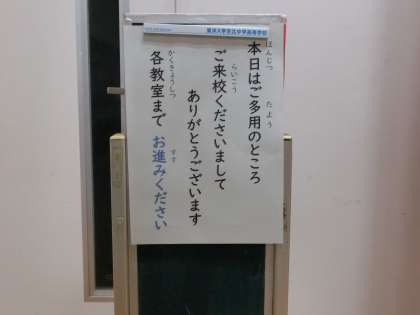 東洋大学京北中学高等学校
本日はご多用のところ
ほんじつ
たよう
ご来校くださいまして
らいこう
ありがとうございます
各教室まで お進みください
かくきょうしつ
すす